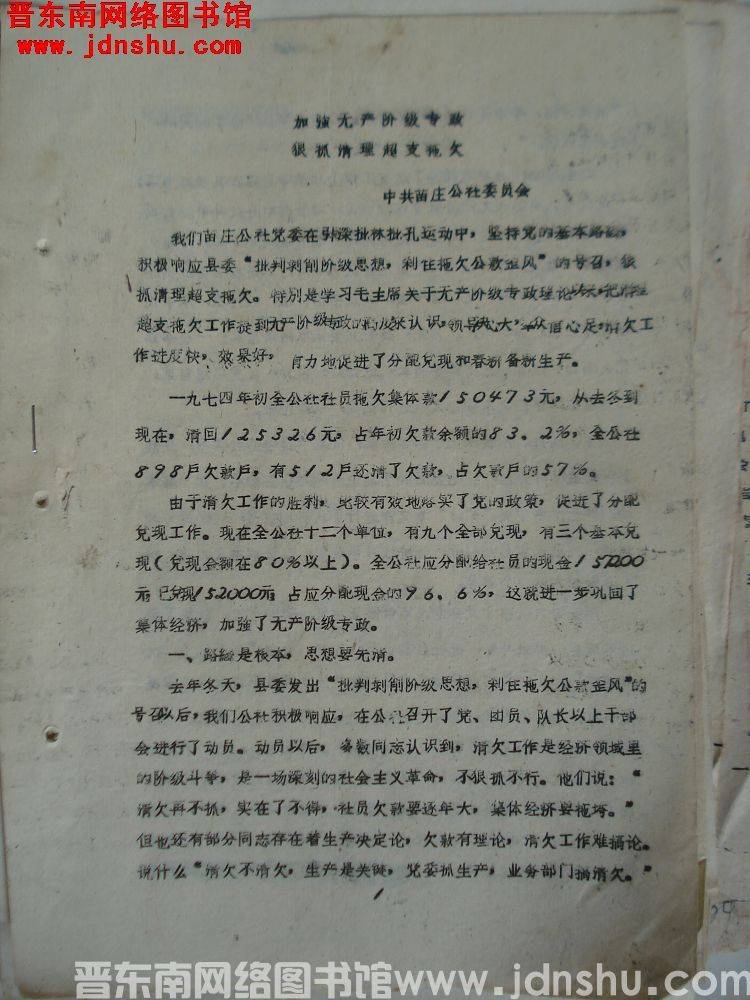 晋东南网络图书馆
www.jdnshu.com
加強无产阶级专政
狠抓清理超支拖欠
中共苗庄公社委员会
我们苗庄公社党委在引深批林批孔运动中，坚持党的基本路線，
积极响应县委“批判剥削阶级思想，刹住拖欠公款歪风”的号召，很
抓清理超支拖欠。特别是学习毛主席关于无产阶级专政理论以来，把清理
超支拖欠工作提到无产阶级专政的高度来认识，领导决心大，群众信心足，清欠工
作进度快，效果好，有力地促进了分配兑现和春耕备耕生产。
一九七四年初全公社社员拖欠集体款150473元，从去冬到
现在，清回125326元，占年初欠款余额的83．2%，全公社
898戶欠款戶，有512戶还清了欠款，占欠款戶的57%。
由于清欠工作的胜利，比较有效地落实了党的政策，促进了分配
兑现工作。现在全公社十二个单位，有九个全部兑现，有三个基本兑
现（兑现金额在80%以上）。全公社应分配给社员的现金157200
元已兑现152000元，占应分配现金的96．6%，这就进一步巩固了
集体经济，加強了无产阶级专政。
一、路線是根本，思想要先清。
去年冬天，县委发出“批判剥削阶级思想，刹住拖欠公款歪风”的
号召以后，我们公社积极响应，在公社召开了党、团员、队长以上干部
会进行了动员。动员以后，多数同志认识到，清欠工作是经济领域里
的阶级斗争，是一场深刻的社会主义革命，不狠抓不行。他们说：“
清欠再不抓，实在了不得，社员欠款要逐年大，集体经济要拖垮。”
但也还有部分同志存在着生产决定论，欠款有理论，清欠工作难搞论。
说什么“清欠不清欠，生产是关键，党委抓生产，业务部门搞清欠。”
1
晋东南网络图书馆www.jdnshu.com